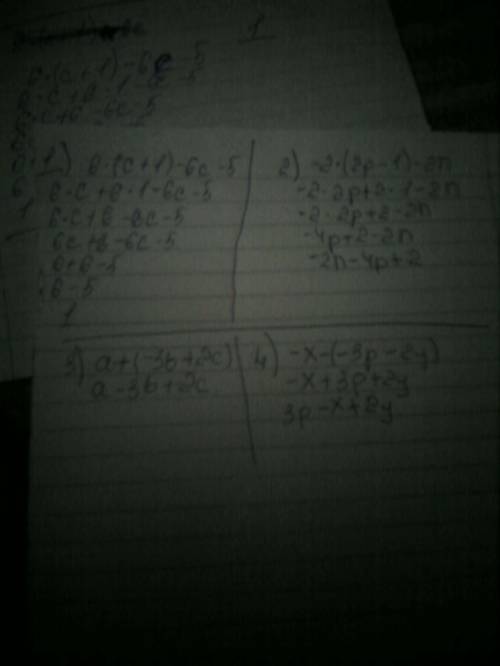 1
1) 6·(c+1)-6c-5
6·c+6·1-6c-5
6·c+6-6c-5
6c+6-6c-5
0+6-5
6-5
1
2) -2·(2p-1)-2n
-2·2p+2·1-2n
-2·2p+2-2n
-4p+2-2n
-2n-4p+2
3) a+(-3b+2c)
a-3b+2c
4) -x-(-3p-2y)
-x+3p+2y
3p-x+2y